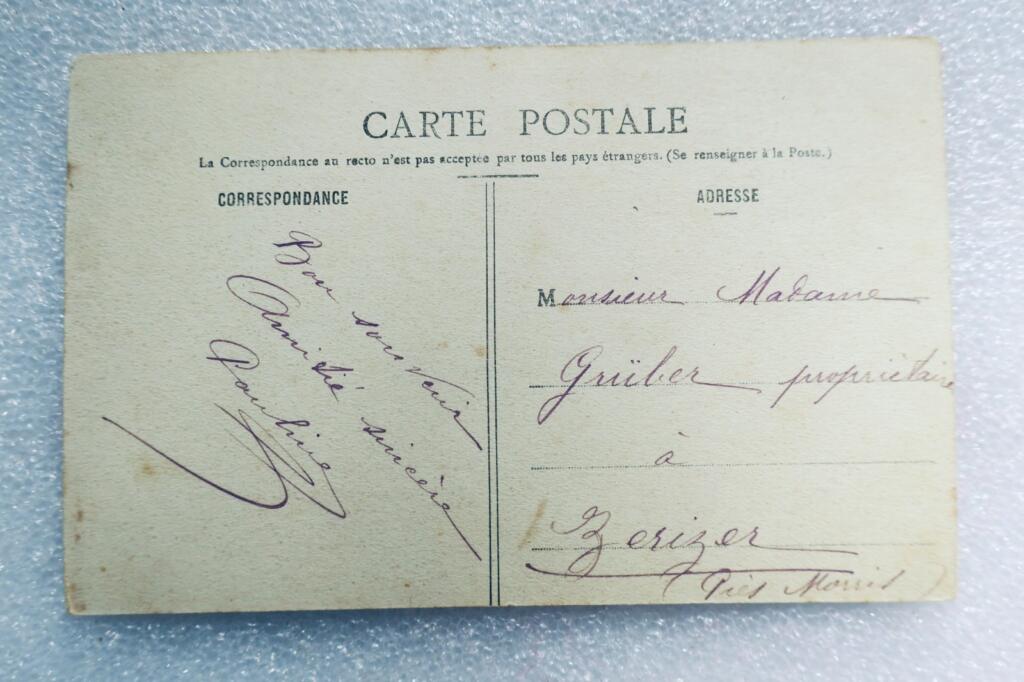 CARTE POSTALE
La Correspondance au recto n'est pas acceptée par tous les pays étrangers. (Se renseigner à la Poste.)
CORRESPONDANCE
Bon souvenir
Amitié sincère
Pauline
ADRESSE
Monsieur Madame
Grüber propriétaire
à
Berizer